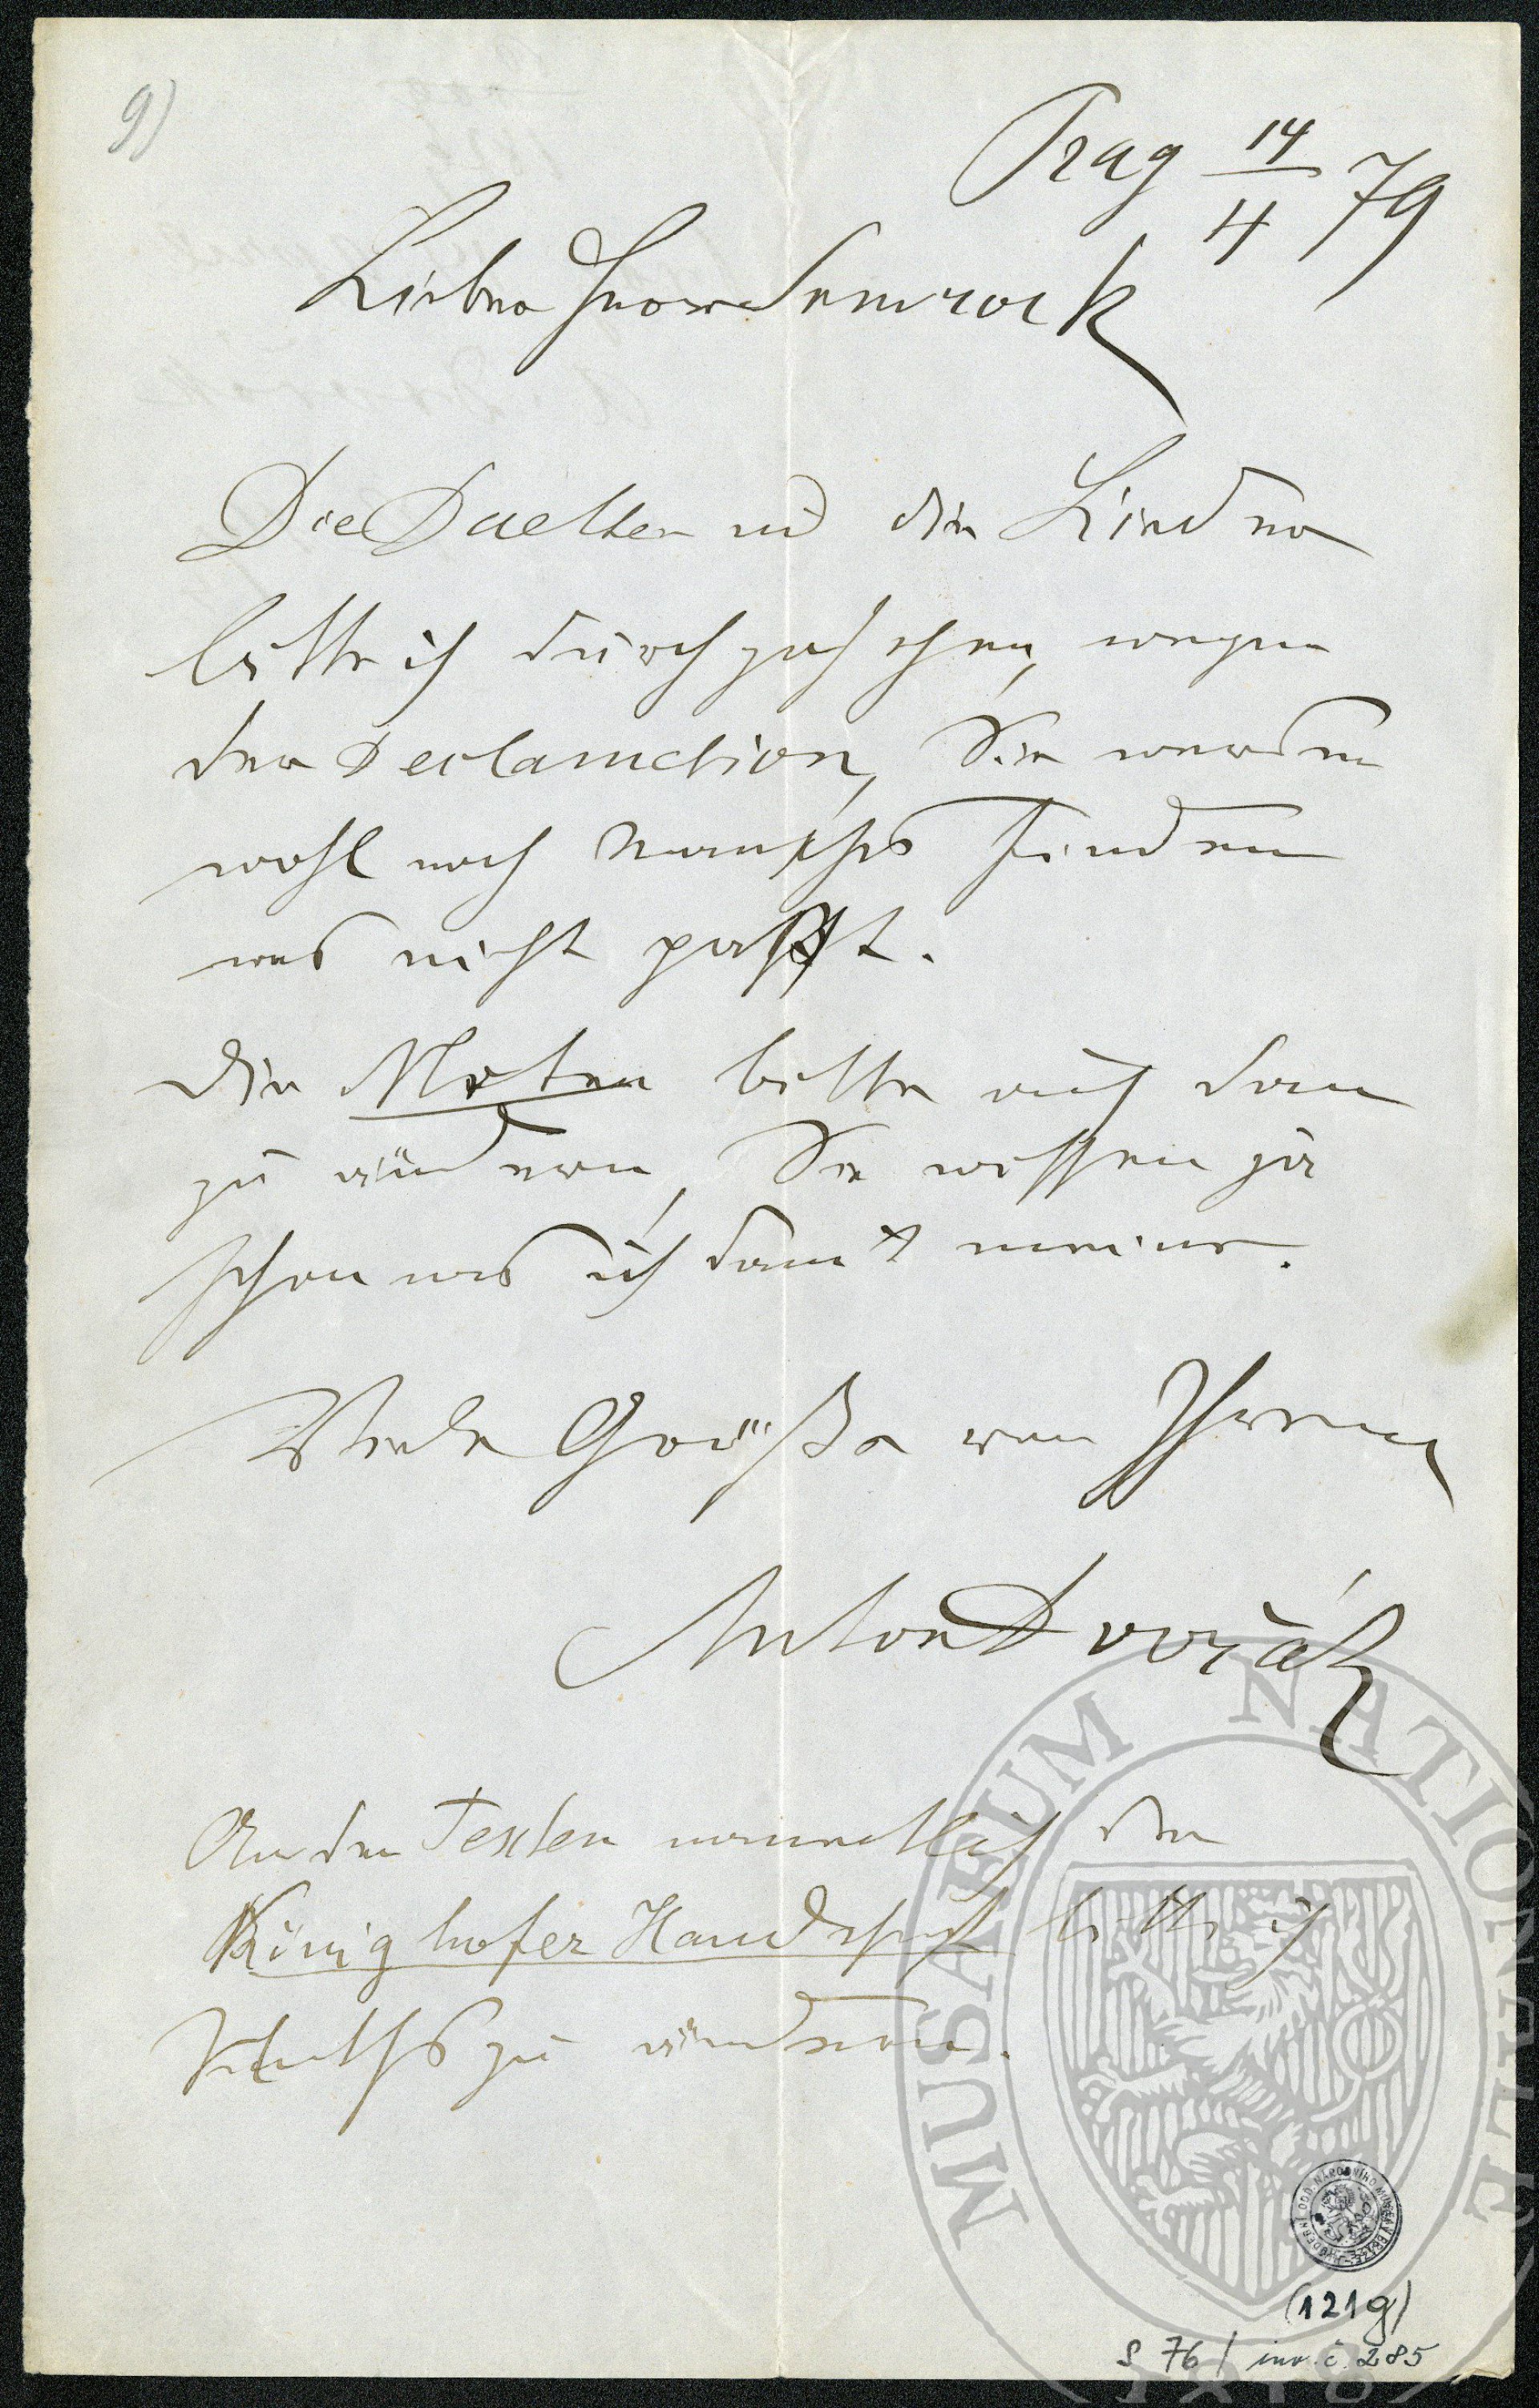 9)
Prag 14/4 79
Lieber Herr Simrock
Die Duetten und die Lieder
bitte ich durchzusehen, wegen
der Declamation, Sie werden
wohl noch manches finden
was nicht passt.
Die Noten bitte auch dann
zu ändern, Sie wissen ja
schon was ich damit meine.
Viele Grüße von Ihrem
Anton Dvořák
An den Texten namentlich der
Königinhofer Handschrift bitte ich
Nichts zu ändern.
MUSAEUM NATIONALE
1818
(121g)
S 76/ inv. č. 285